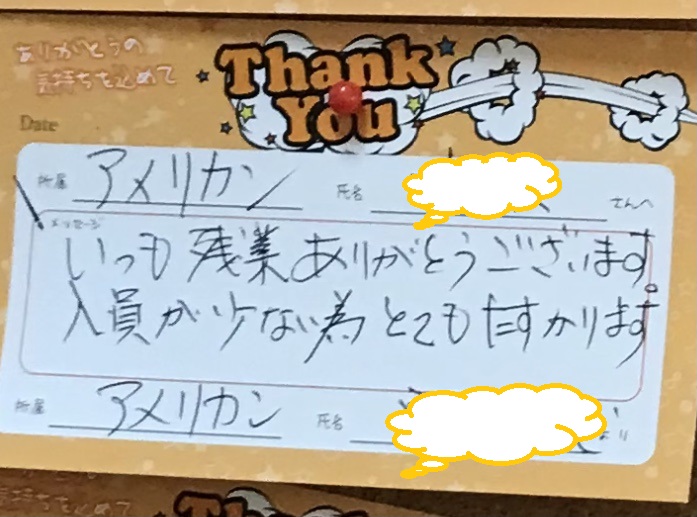 ありがとうの
気持ちを込めて
Thank
You
Date
所属 アメリカン 氏名 さんへ
メッセージ
いつも残業ありがとうございます。
人員が少ない為とてもたすかります
所属 アメリカン 氏名 より
気持ちを込めて